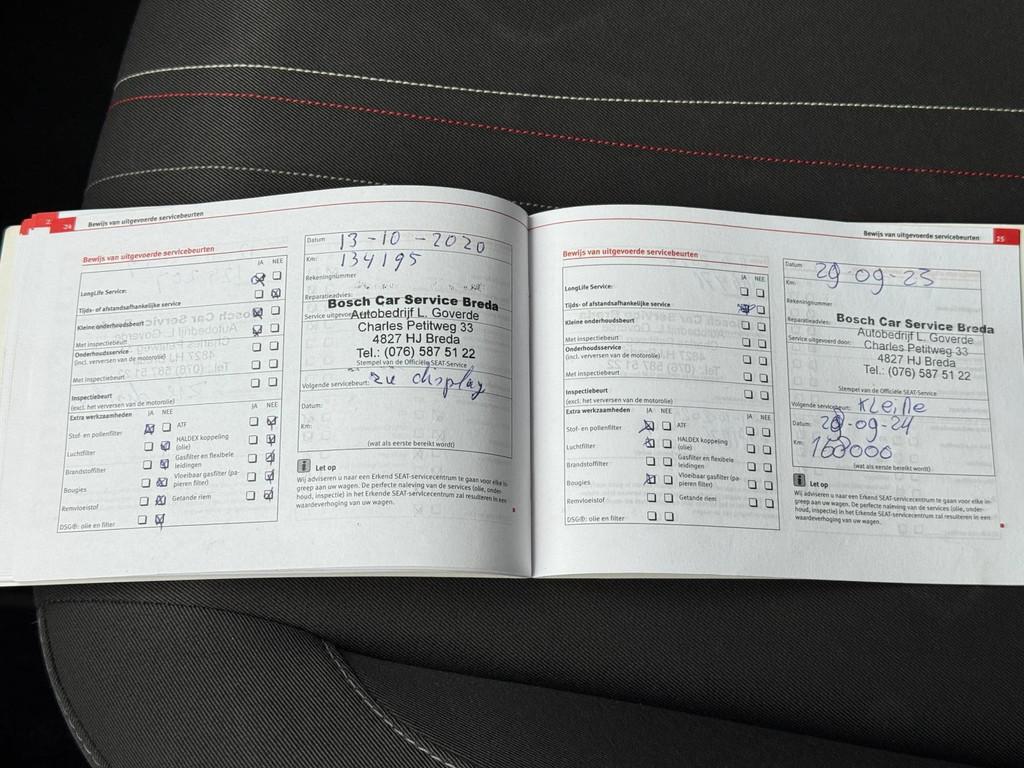 24
Bewijs van uitgevoerde servicebeurten
Bewijs van uitgevoerde servicebeurten
JA NEE
LongLife Service:
Tijds- of afstandsafhankelijke service
Kleine onderhoudsbeurt
Met inspectiebeurt
Onderhoudsservice
(incl. verversen van de motorolie)
Met inspectiebeurt
Inspectiebeurt
(excl. het verversen van de motorolie)
Extra werkzaamheden
JA NEE
JA NEE
Stof- en pollenfilter
ATF
Luchtfilter
HALDEX koppeling
(olie)
Brandstoffilter
Gasfilter en flexibele
leidingen
Bougies
Vloeibaar gasfilter (pa-
pieren filter)
Remvloeistof
Getande riem
DSG®: olie en filter
Datum 13-10-2020
Km: 134195
Rekeningnummer
Reparatieadvies:
Bosch Car Service Breda
Service uitgevoerd
Autobedrijf L. Goverde
Charles Petitweg 33
4827 HJ Breda
Tel.: (076) 587 51 22
Stempel van de Officiële SEAT-Service
Volgende servicebeurt: zie display
Datum:
Km:
(wat als eerste bereikt wordt)
Let op
Wij adviseren u naar een Erkend SEAT-servicecentrum te gaan voor elke in-
greep aan uw wagen. De perfecte naleving van de services (olie, onder-
houd, inspectie) in het Erkende SEAT-servicecentrum zal resulteren in een
waardeverhoging van uw wagen.
Bewijs van uitgevoerde servicebeurten
25
Bewijs van uitgevoerde servicebeurten
JA NEE
LongLife Service:
Tijds- of afstandsafhankelijke service
Kleine onderhoudsbeurt
Met inspectiebeurt
Onderhoudsservice
(incl. verversen van de motorolie)
Met inspectiebeurt
Inspectiebeurt
(excl. het verversen van de motorolie)
Extra werkzaamheden
JA NEE
JA NEE
Stof- en pollenfilter
ATF
Luchtfilter
HALDEX koppeling
(olie)
Brandstoffilter
Gasfilter en flexibele
leidingen
Bougies
Vloeibaar gasfilter (pa-
pieren filter)
Remvloeistof
Getande riem
DSG®: olie en filter
Datum: 29-09-23
Km:
Rekeningnummer
Reparatieadvies:
Bosch Car Service Breda
Service uitgevoerd door:
Autobedrijf L. Goverde
Charles Petitweg 33
4827 HJ Breda
Tel.: (076) 587 51 22
Stempel van de Officiële SEAT-Service
Volgende servicebeurt: Kleine
Datum: 29-09-24
Km:
(wat als eerste bereikt wordt)
Let op
Wij adviseren u naar een Erkend SEAT-servicecentrum te gaan voor elke in-
greep aan uw wagen. De perfecte naleving van de services (olie, onder-
houd, inspectie) in het Erkende SEAT-servicecentrum zal resulteren in een
waardeverhoging van uw wagen.